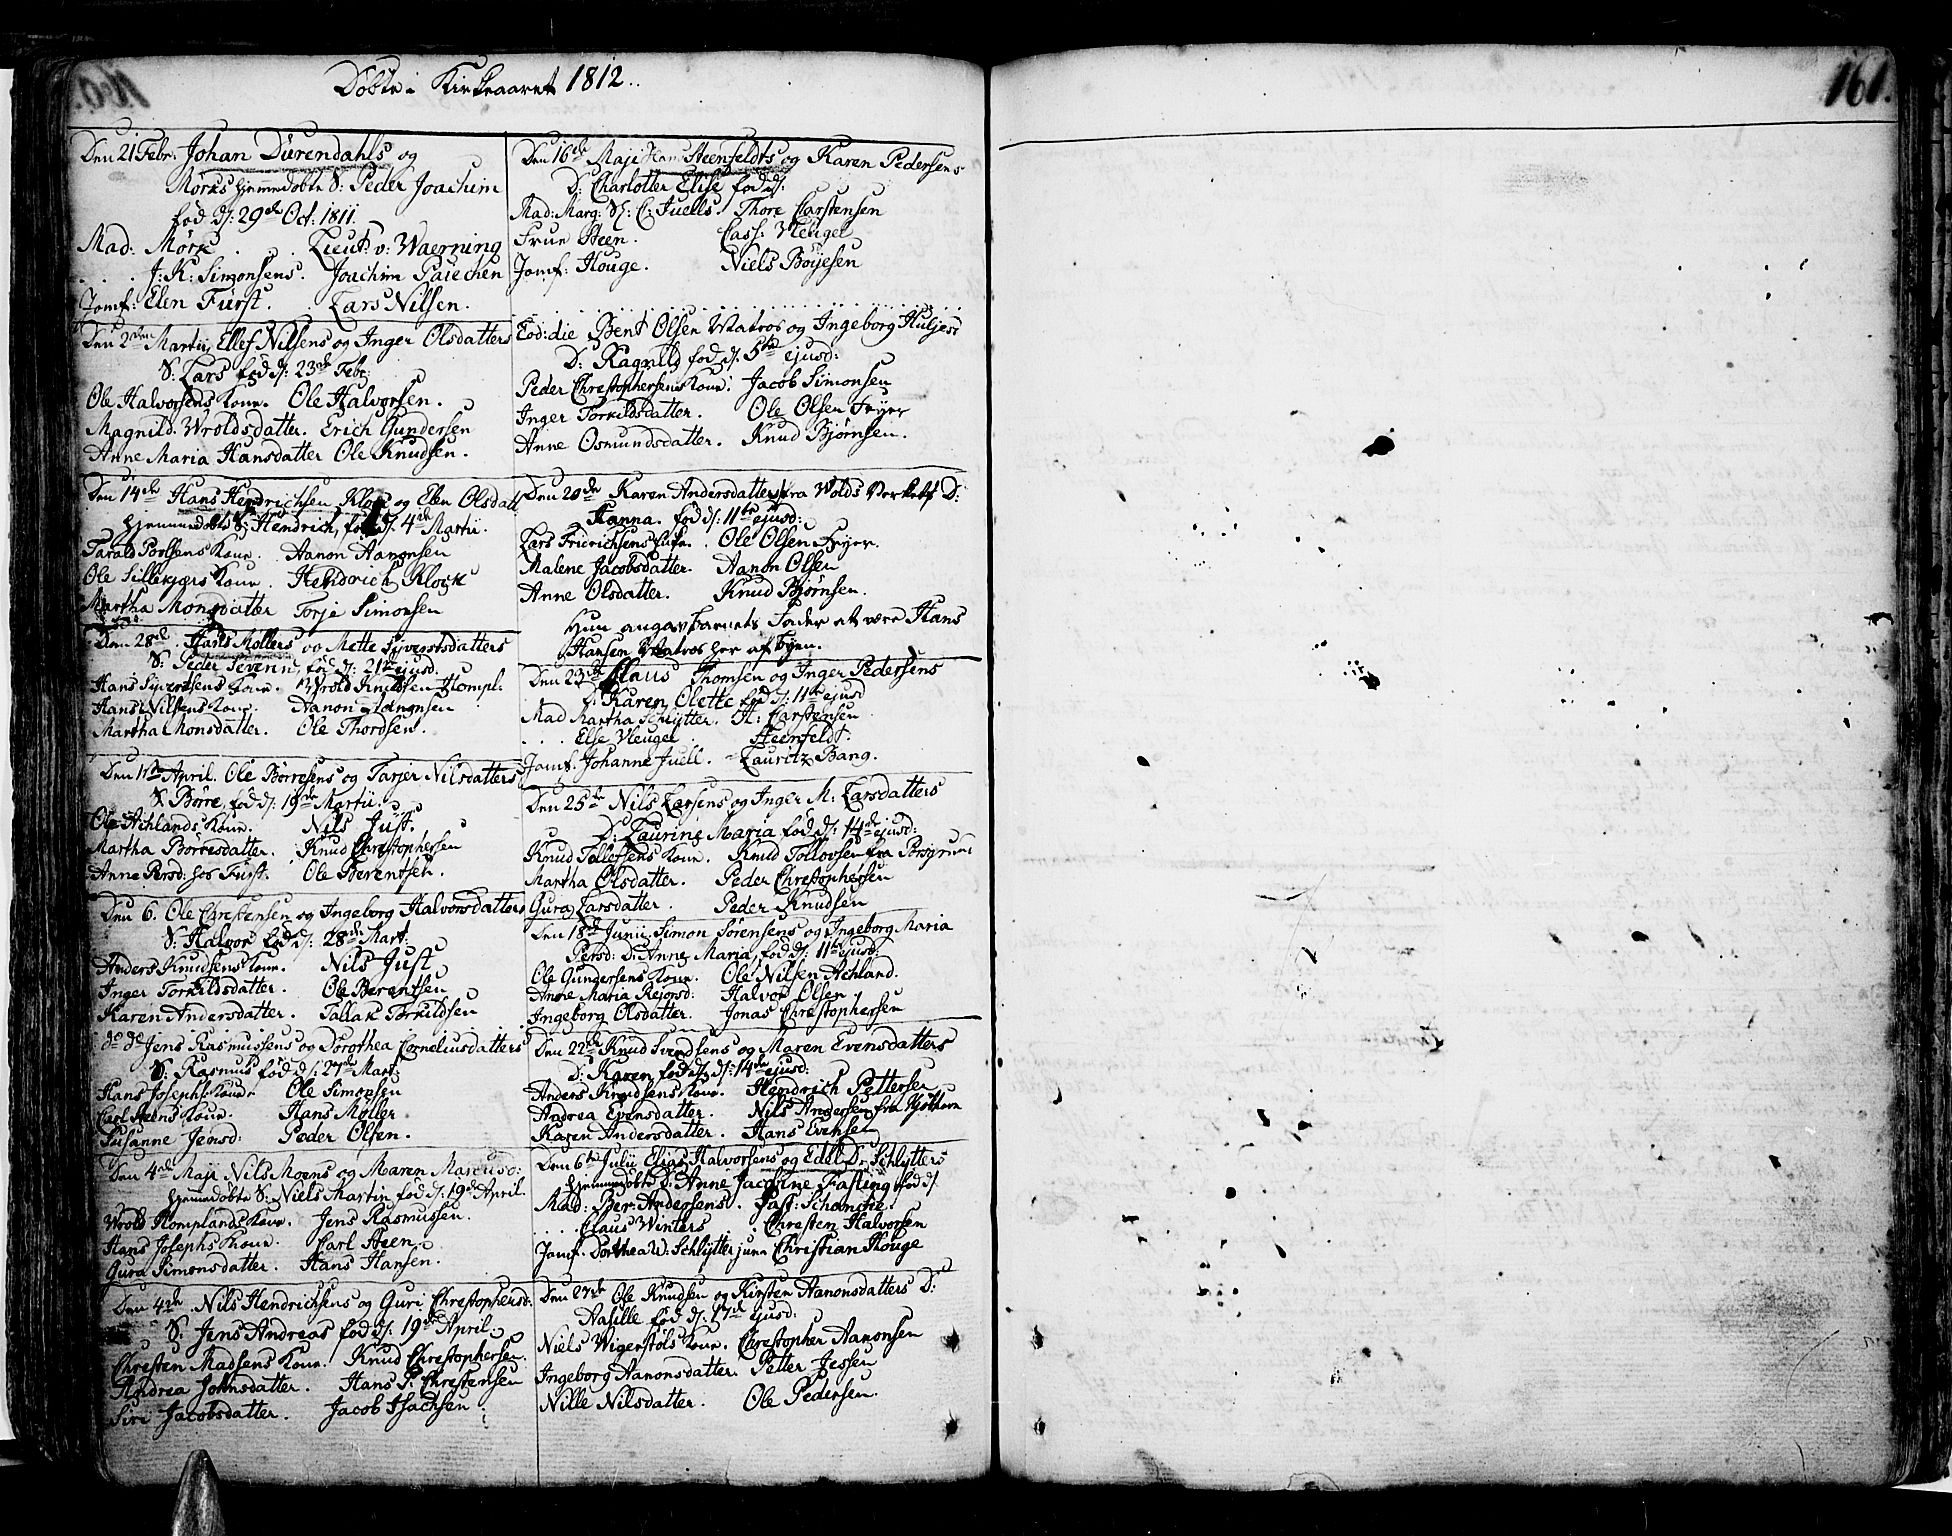 Döbte i Kirkeaaret 1812.
161.
Den 21 Febr: Johan Dürendahls og
Mørks hjemmedöbte S: Peder Joachim
föd d: 29de Oct: 1811.
Mad: Mørk. Lieut: v: Waerning
J: K: Simonsens. Joachim Paiechen
Jomf: Elen Fürst. Lars Nilsen.
Den 2den Martii Ellef Nilsens og Inger Olsdatters
S: Lars föd d: 23de Febr:
Ole Halvorsens Kone. Ole Halvorsen.
Magnild Wroldsdatter. Erich Gundersen
Anne Maria Hansdatter Ole Knudsen.
Den 14de Hans Hendrichsen Klock og Elen Olsdatt
hjemmedöbte S: Hendrich, föd d: 4de Martii.
Tarald Poulsens Kone. Aanon Aanonsen
Ole Sillekjærs Kone. Hendrich Klock
Martha Monsdatter Torje Simonsen
Den 28de Hans Mollers og Mette Syvertsdatters
S: Peder Severin, föd d: 21de ejusd.
Hans Syvertsens Kone. Wrold Knudsen Hompl:
Hans Nilsens Kone. Aanon Aanonsen
Martha Monsdatter. Ole Thordsen.
Den 1ste April. Ole Börresens og Tarjer Nilsdatters
S. Börre, föd d: 19de Martii.
Ole Achlands Kone. Nils Just.
Martha Börresdatter. Knud Christophersen
Anne Persd: hos Fürst. Ole Berentsen.
Den 6. Ole Christensen og Ingeborg Halvorsdatters
S: Halvor föd d: 28de Mart:
Anders Knudsens Kone. Nils Just
Inger Torkildsdatter. Ole Berentsen
Karen Andersdatter. Tallak Torkildsen
do do Jens Rasmussens og Dorothea Corneliusdatters
S: Rasmus föd d: 27de Mart:
Hans Josephs Kone. Ole Simonsen
Carl Steens Kone. Hans Moller.
Susanne Jensd: Peder Olsen.
Den 4de Maji Nils Moens og Maren Marcusd:
hjemmedöbte S: Niels Martin föd d: 19de April.
Wrold Homplands Kone. Jens Rasmussen.
Hans Josephs Kone. Carl Steen
Gura Simonsdatter. Hans Hansen.
Den 4de. Nils Hendrichsens og Guri Christophersd:
S: Jens Andreas föd d: 19de April.
Christen Madsens Kone. Knud Christophersen.
Andrea Johnsdatter. Hans P. Christensen
Siri Jacobsdatter. Jacob Isachsen
Den 16de Maji Hans Steenfeldts og Karen Pedersens
D: Charlotter Elise föd d:
Mad: Marg: S: C: Juells. Thore Carstensen
Frue Steen. Cass: Vleugel
Jomf: Houge. Niels Böyesen
Eod: die Bent Olsen Matros og Ingeborg Huljesd
D: Ragnild föd d: 5te ejusd:
Peder Christophersens Kone. Jacob Simonsen
Inger Torkildsdatter. Ole Olsen Fryer
Anne Osmundsdatter. Knud Bjørnsen.
Den 20de Karen Andersdatters fra Wolds Verkets D:
Hanna. föd d: 11te ejusd:
Lars Fridrichsens Enke. Ole Olsen Fryer.
Malene Jacobsdatter. Aanon Olsen
Anne Olsdatter. Knud Bjørnsen.
Hun angav barnets Fader at være Hans
Hansen Matros her af Byen.
Den 23de Claus Thomsen og Inger Pedersens
D: Karen Olette föd d: 11te ejusd
Mad Martha Schlytter. H: Carstensen
Else Vleugel Steenfeldt.
Jomf: Johanne Juell. Lauritz Bang.
Den 25de Nils Larsens og Inger M: Larsdatters
D: Laurine Maria föd d: 14de ejusd:
Knud Tollefsens Kone. Knud Tollovsen fra Porsgrund
Martha Olsdatter. Peder Christophersen
Gura Larsdatter. Peder Knudsen
Den 18de Junii Simon Sörensens og Ingeborg Maria
Persd: D: Anne Maria, föd d: 11te ejusd:
Ole Gundersens Kone. Ole Nilsen Achland.
Anne Maria Rejersd: Halvor Olsen
Ingeborg Olsdatter. Jonas Christophersen
Den 22de Knud Svendsens og Maren Evensdatters
D: Karen föd d: 14de ejusd:
Anders Knudsens Kone. Hendrich Pettersen
Andrea Evensdatter. Nils Andersen fra
Karen Andersdatter. Hans Evensen
Den 6te Julii Elias Halvorsens og Edel D: Schlytters
hjemmedöbte D: Anne Jacobine Fasting föd d:
Mad: Ber: Andersens. Past: Schanche.
Claus Winters Christen Halvorsen
Jomf. Dorthea W: Schlytter jun: Christian Houge
Den 27de Ole Knudsen og Kirsten Aanonsdatters D:
Aasille föd d: 17de ejusd:
Niels Wigerstöls Kone. Christopher Aanonsen
Ingeborg Aanonsdatter. Petter Jessen
Nille Nilsdatter. Ole Pedersen.